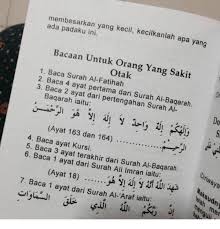 membesarkan yang kecil, kecilkanlah apa yang
ada padaku ini.
Bacaan Untuk Orang Yang Sakit
Otak
1. Baca Surah Al-Fatihah
2. Baca 4 ayat pertama dari Surah Al-Baqarah.
3. Baca 2 ayat dari pertengahan Surah Al-
Baqarah iaitu:
وَإِلَٰهُكُمْ إِلَٰهٌ وَاحِدٌ لَا إِلَٰهَ إِلَّا هُوَ الرَّحْمَٰنُ
الرَّحِيمُ (Ayat 163 dan 164)
4. Baca ayat Kursi.
5. Baca 3 ayat terakhir dari Surah Al-Baqarah
6. Baca 1 ayat dari Surah Ali Imran iaitu:
شَهِدَ اللَّهُ أَنَّهُ لَا إِلَٰهَ إِلَّا هُوَ (Ayat 18)
7. Baca 1 ayat dari Surah Al-'Araf iaitu:
إِنَّ رَبَّكُمُ اللَّهُ الَّذِي خَلَقَ السَّمَاوَاتِ